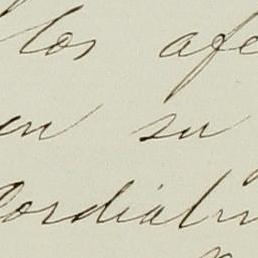 los afe
en su
Cordialm